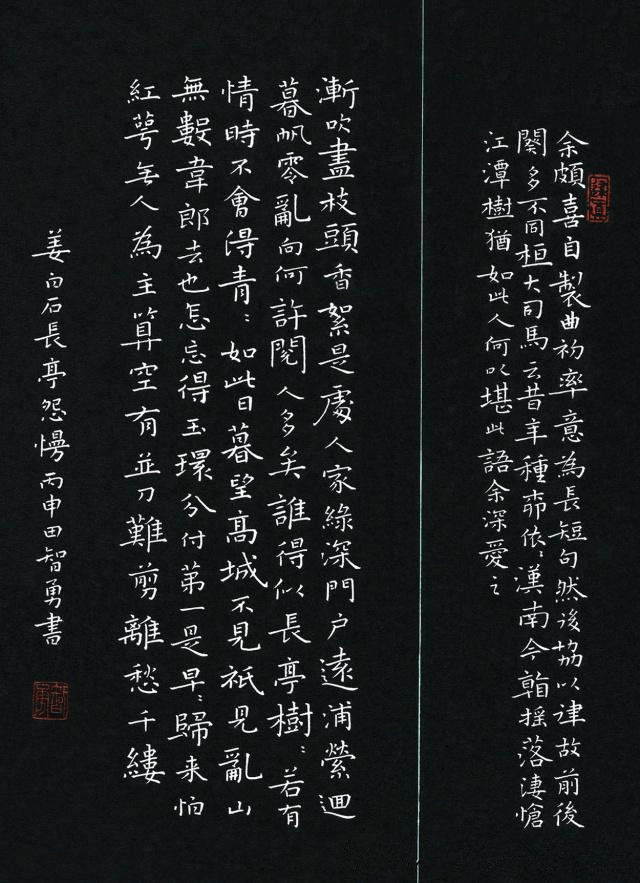 余頗喜自製曲初率意為長短句然後協以律故前後
闋多不同桓大司馬云昔年種柳依〻漢南今看摇落淒愴
江潭樹猶如此人何以堪此語余深愛之
漸吹盡枝頭香絮是處人家綠深門户遠浦縈迴
暮帆零亂向何許閱人多矣誰得似長亭樹〻若有
情時不會得青〻如此日暮望高城不見衹見亂山
無數韋郎去也怎忘得玉環分付第一是早〻歸来怕
紅萼无人為主算空有並刀難剪離愁千縷
姜白石長亭怨慢丙申田智勇書
智勇